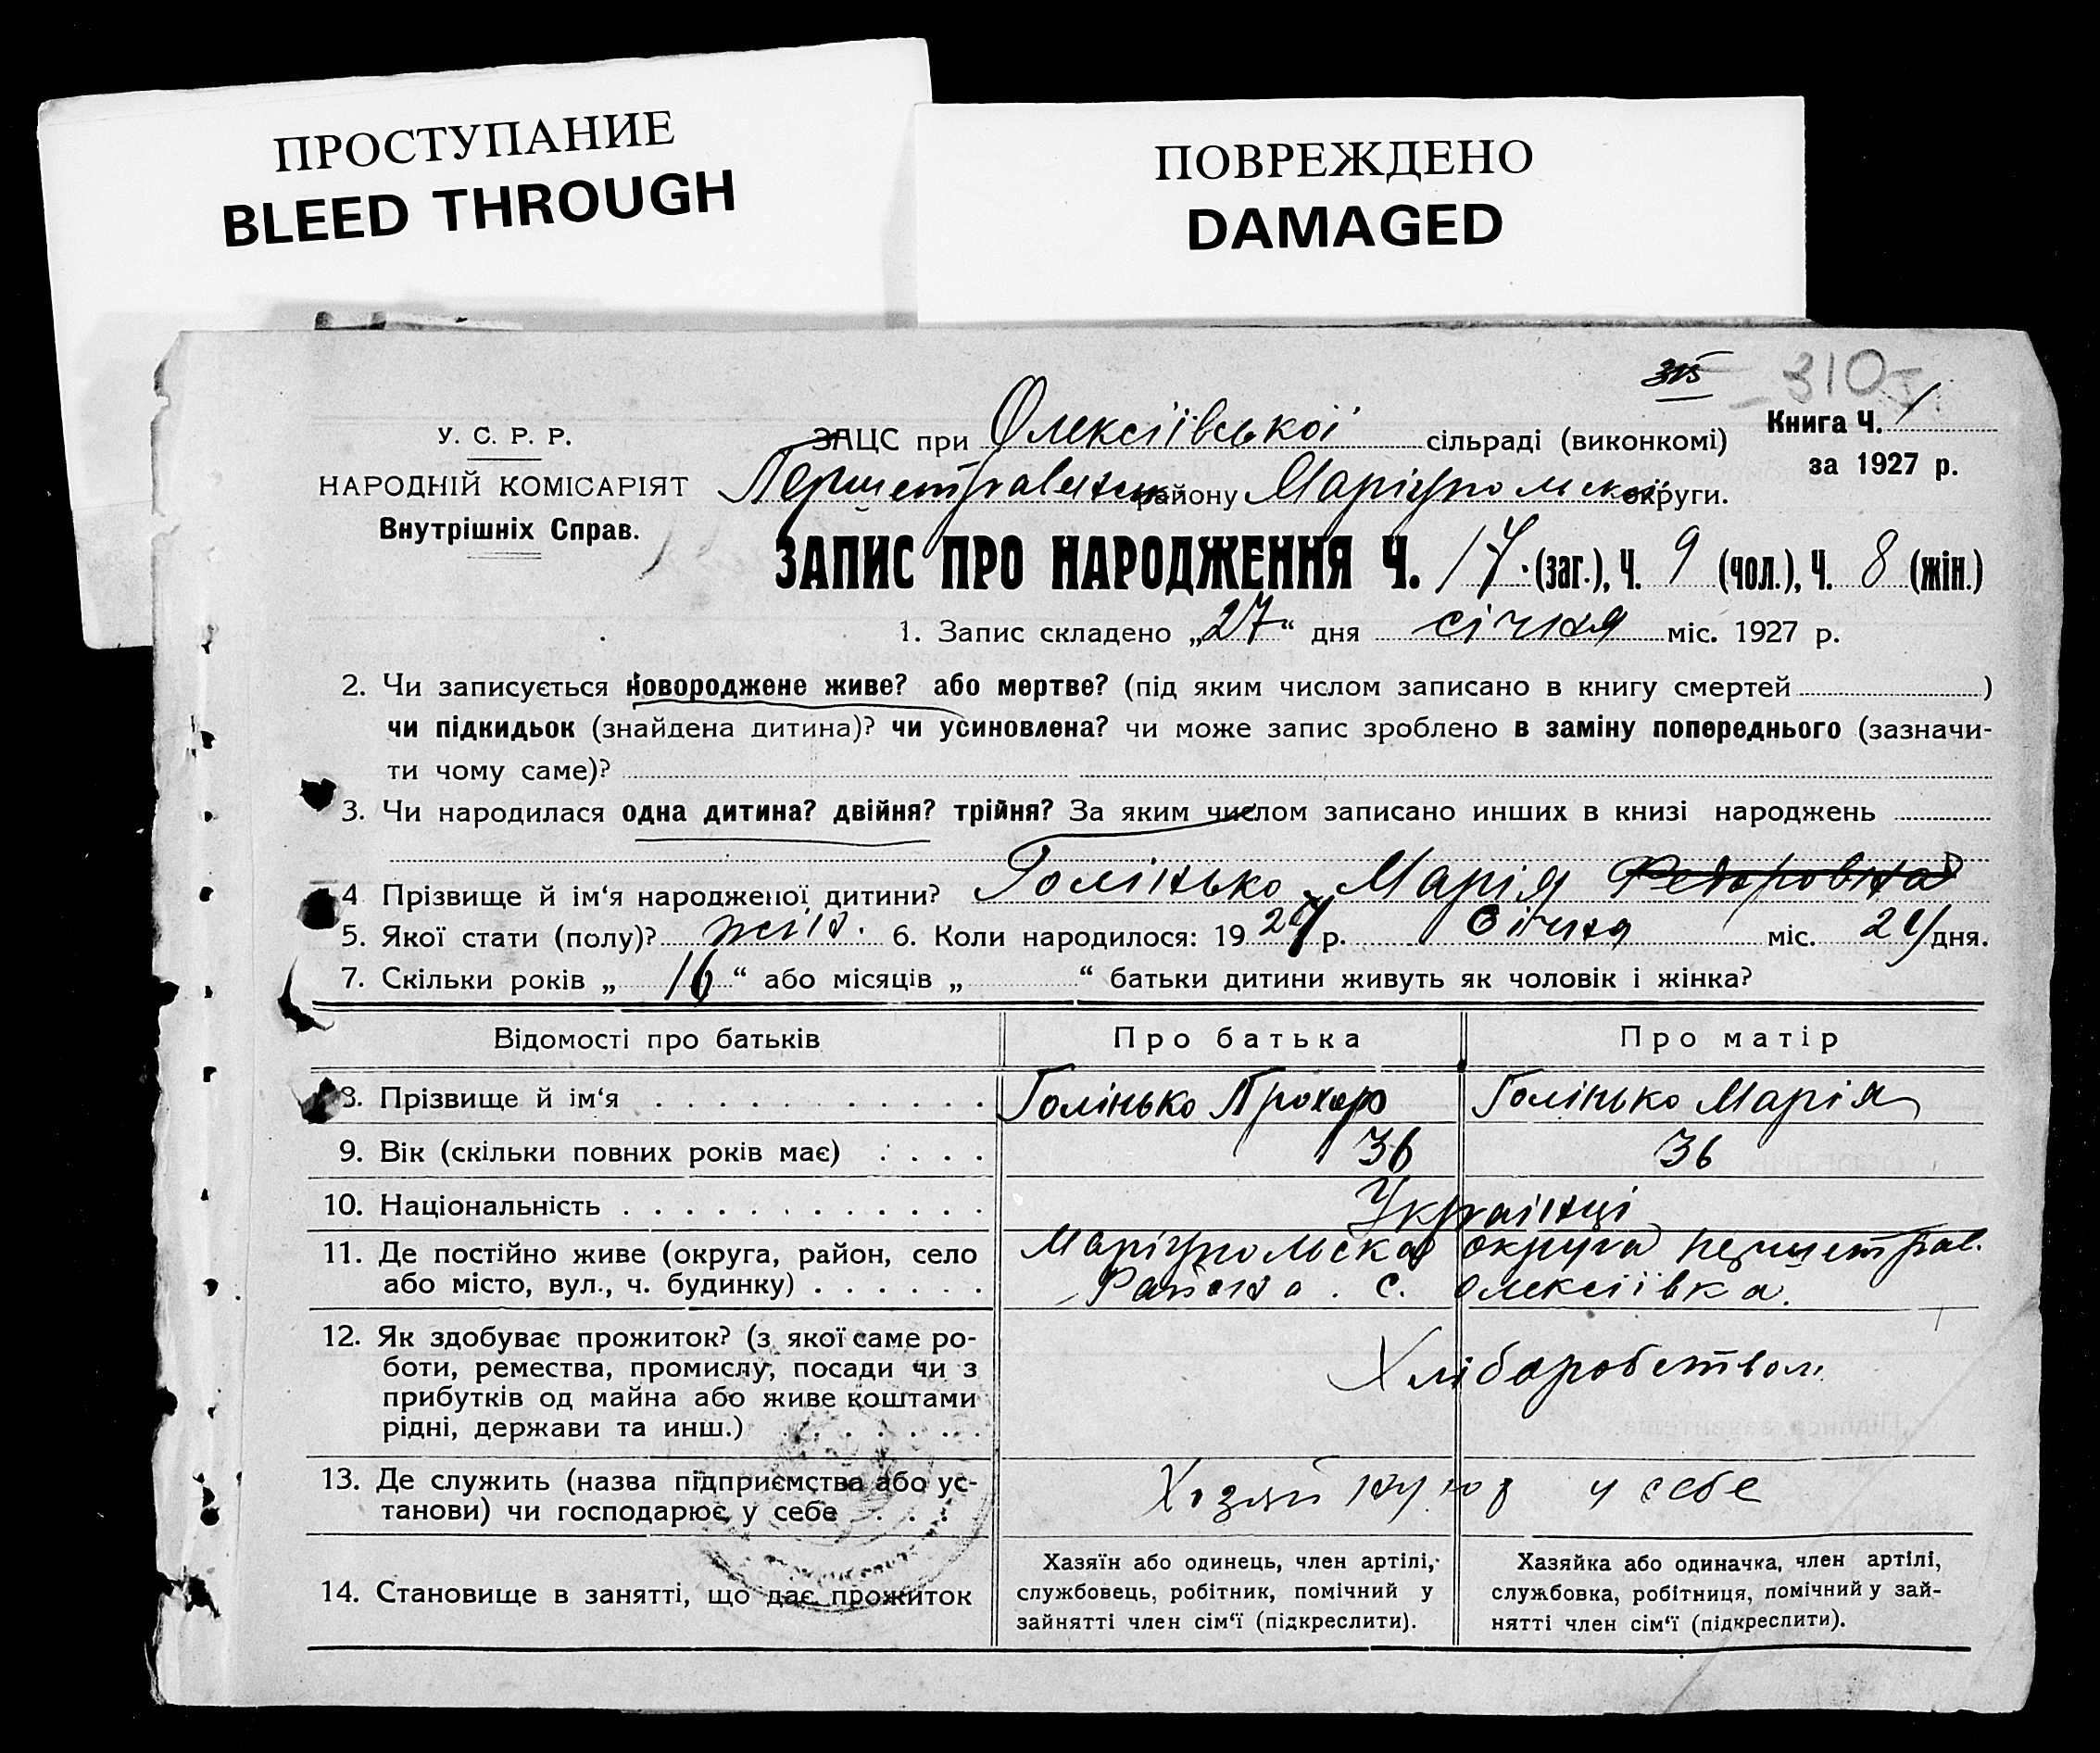 ПРОСТУПАНИЕ
BLEED THROUGH
ПОВРЕЖДЕНО
DAMAGED
315
310
У. С. Р. Р.
НАРОДНІЙ КОМІСАРІЯТ
Внутрішніх Справ.
ЗАЦС при Олексіївської сільраді (виконкомі)
району Маріупольської округи.
Книга Ч. 1
за 1927 р.
ЗАПИС ПРО НАРОДЖЕННЯ Ч. 17 (заг.), Ч. 9 (чол.), Ч. 8 (жін.)
1. Запис складено „27“ дня січня міс. 1927 р.
2. Чи записується новороджене живе? або мертве? (під яким числом записано в книгу смертей )
чи підкидьок (знайдена дитина)? чи усиновлена? чи може запис зроблено в заміну попереднього (зазначи-
ти чому саме)?
3. Чи народилася одна дитина? двійня? трійня? За яким числом записано инших в книзі народжень
4 Прізвище й ім‘я народженої дитини? Голінько Марія Федоровна
5. Якої стати (полу)? жін. 6. Коли народилося: 1927 р. Січня міс. дня.
7. Скільки років „ 16 “ або місяців „ “ батьки дитини живуть як чоловік і жінка?
Відомості про батьків Про батька Про матір
8. Прізвище й ім‘я Голінько Прохор Голінько Марія
9. Вік (скільки повних років має) 36 36
10. Національність Українці
11. Де постійно живе (округа, район, село Маріупольска округа першетрав.
або місто, вул., ч. будинку) Района. с. Олексіївка.
12. Як здобуває прожиток? (з якої саме ро-
боти, ремества, промислу, посади чи з Хліборобством
прибутків од майна або живе коштами
рідні, держави та инш.)
13. Де служить (назва підприємства або ус- у себе
танови) чи господарює у себе
14. Становище в занятті, що дає прожиток
Хазяїн або одинець, член артілі,
службовець, робітник, помічний у
зайнятті член сім‘ї (підкреслити).
Хазяйка або одиначка, член артілі,
службовка, робітниця, помічний у зай-
нятті член сім‘ї (підкреслити).